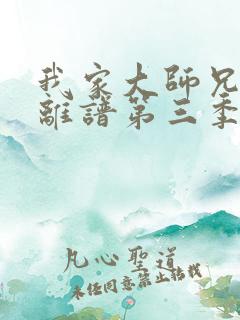 我家大師兄
離譜第三季
凡心聖道
未经同意禁止转载